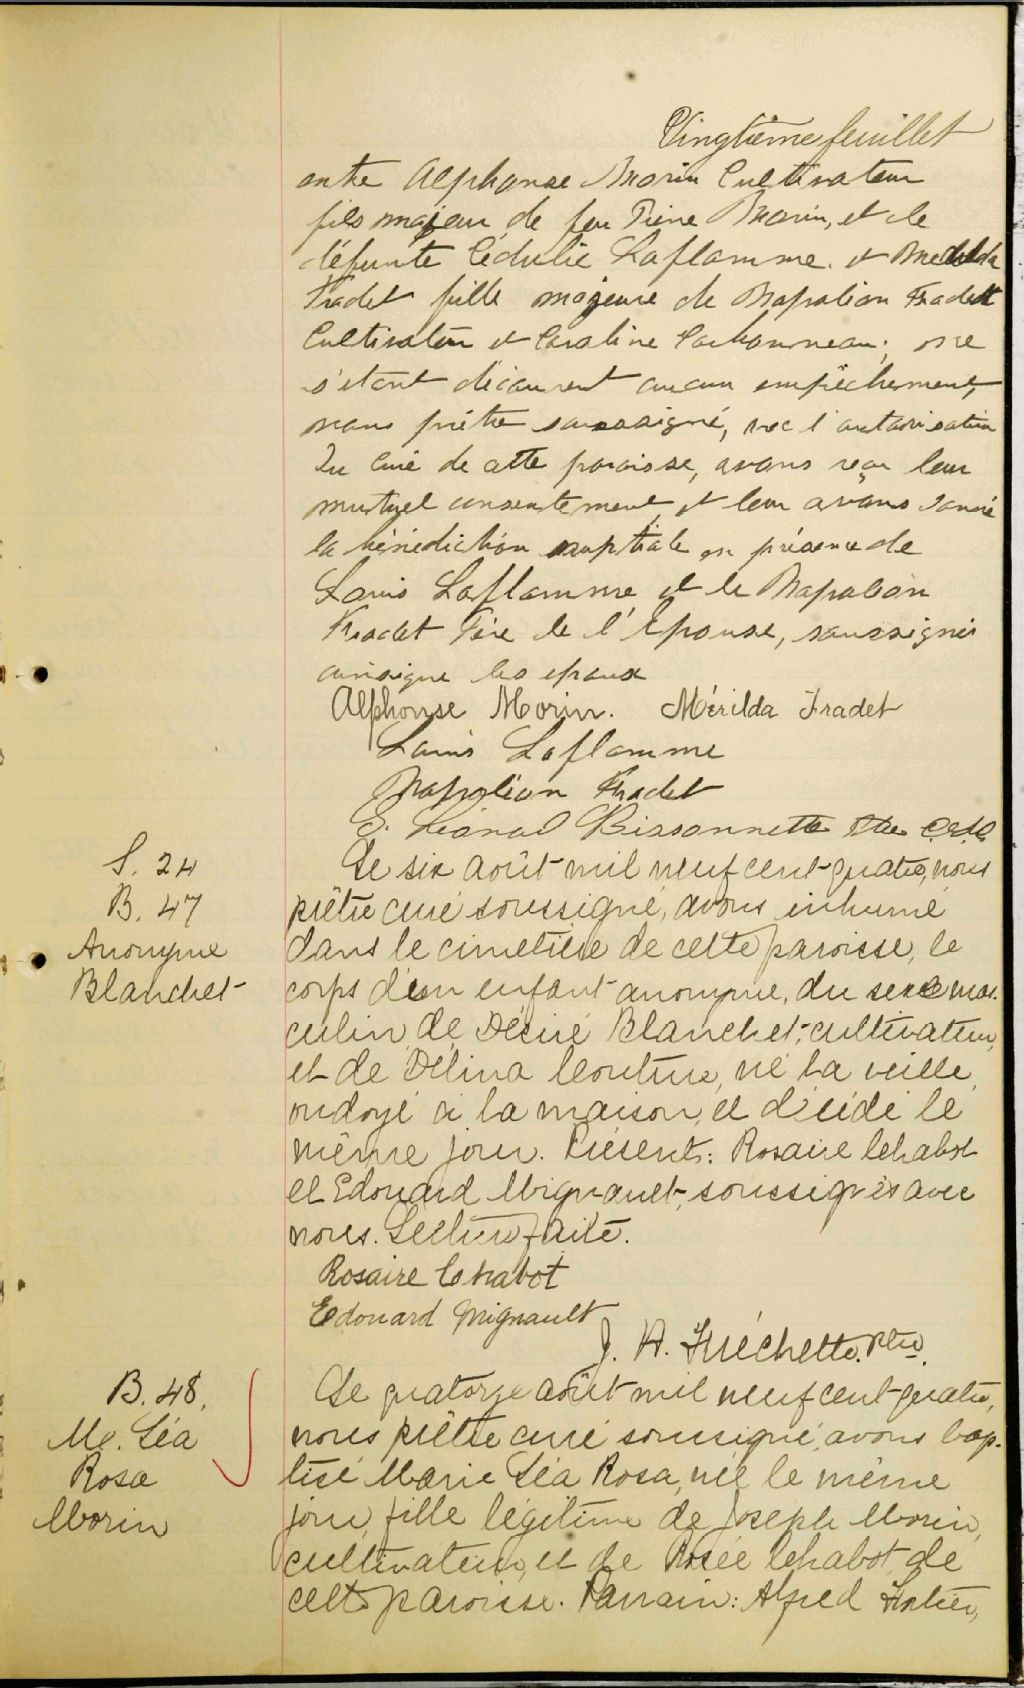 Vingtième feuillet
entre Alphonse Morin Cultivateur
fils majeur de feu Pierre Morin, et de
défunte Cédulie Laflamme. et Merilda
Fradet fille majeure de Napoléon Fradet
Cultivateur et Caroline Carbonneau; ne
s'étant découvert aucun empêchement,
nous prêtre soussigné, avec l'autorisation
Du Curé de cette paroisse, avons reçu leur
mutuel consentement et leur avons donné
la bénédiction nuptiale en présence de
Louis Laflamme et de Napoléon
Fradet Père de l'Epouse, soussignés
ainsique les epoux
Alphonse Morin. Mérilda Fradet
Louis Laflamme
Napoléon Fradet
J. Léonal Bissonnette Ptre
S. 24
B. 47
Anonyme
Blanchet
Le six août mil neuf cent-quatre, nous
prêtre curé soussigné, avons inhumé
dans le cimetière de cette paroisse, le
corps d'un enfant anonyme, du sexe mas-
culin, de Désiré Blanchet, cultivateur,
et de Délina Couture, né la veille,
ondoyé à la maison, et décédé le
même jour. Présents: Rosaire Chabot
et Edouard Mignault, soussignés avec
nous. Lecture faite.
Rosaire Chabot
Edouard Mignault
J. A. Fréchette. Ptre.
B. 48.
Me. Léa
Rosa
Morin
Le quatorze août mil neuf cent-quatre,
nous prêtre curé soussigné, avons bap-
tisé Marie Léa Rosa, née le même
jour, fille légitime de Joseph Morin,
cultivateur, et de Rosée Chabot, de
cette paroisse. Parrain: Alfred Fortier,